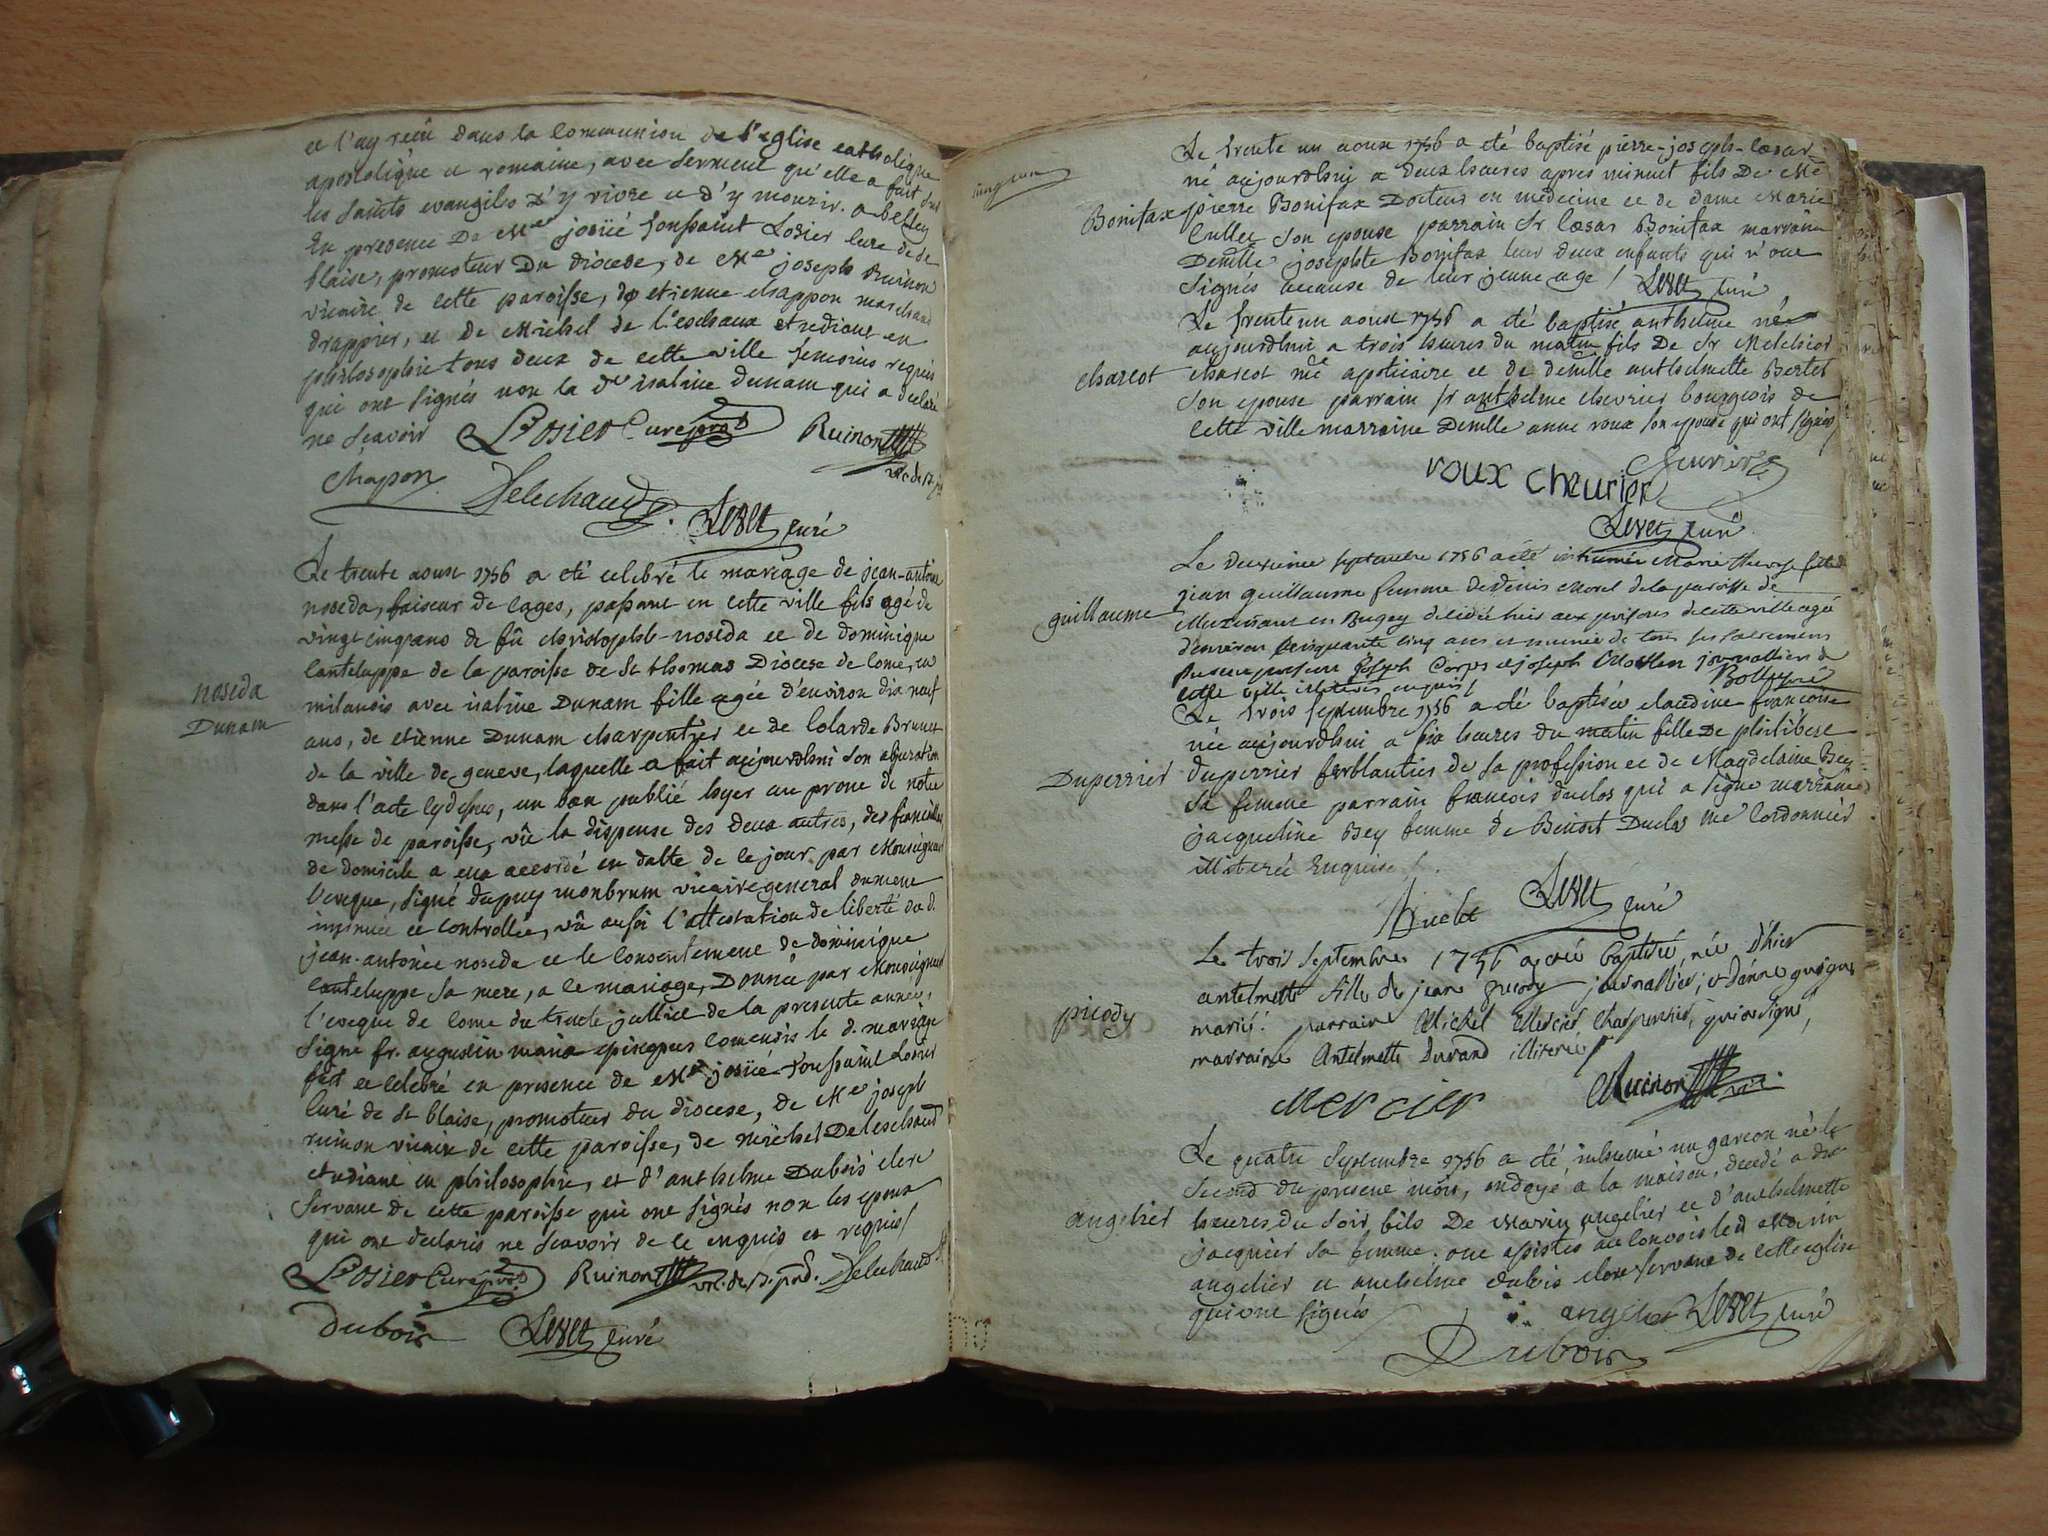 et l'ay reçu dans la Communion de l'eglise catholique
apostolique et romaine, avec serment qu'elle a fait sur
les saints evangiles d'y vivre et d'y mourir. a belley
En presence De Me josué toussaint Losier Curé de st
blaise, promoteur Du diocese, de Me joseph Ruinon
vicaire de cette paroisse, de etienne chappon marchand
drappier, et de Michel de l'eschaux etudiant en
philosophie tous deux de cette ville temoins requis
qui ont signés non la de isaline dunam qui a declaré
ne sçavoir Losier Curé prod Ruinon
vic. de B.
Chapon Delechaud
Levet curé
Le trente aoust 1756 a eté celebré le mariage de jean-antoine
noseda, faiseur de cages, passant en cette ville fils agé de
vingt cinq ans de fû christophle-noseda et de dominique
Canteluppe de la paroisse de St thomas Diocese de Come, en
noseda
Dunam
milanois avec isaline Dunam fille agée d'environ dix neuf
ans, de etienne Dunam charpentier et de Colarde Brunet
de la ville de geneve, laquelle a fait aujourdhui son abjuration
dans l'acte cydessus, un ban publié hyer au prone de notre
messe de paroisse, vû la dispense des deux autres, des fiancailles
de domicile a eux accordé en datte de ce jour par Monseigneur
l'eveque, signé dupuy monbrum vicaire general dument
insinuée et controllée, vû aussi l'attestation de liberté du d.
jean-antoine noseda et le consentement de dominique
Canteluppe sa mere, a ce mariage, Donnée par Monseigneur
l'eveque de Come du trente juillet de la presente année,
signe fr. augustin maria episcopus comensis le d. mariage
fait et celebré en presence de Me josué toussaint Losier
Curé de st blaise, promoteur du diocese, de Me joseph
ruinon vicaire de cette paroisse, de michel Deleschaud
etudiant en philosophie, et d'anthelme Dubois clerc
servant de cette paroisse qui ont signés non les epoux
qui ont declarés ne sçavoir de ce enquis et requis/
Losier Curé prod Ruinon vic. de B. prd. Delechaud
dubois Levet curé
Le trente un aoust 1756 a eté baptisé pierre-joseph-cæsar
né aujourdhuy a deux heures apres minuit fils De Me
Bonifax
pierre Bonifax Docteur en medecine et de dame Marie
Cullet son epouse parrain Sr Cæsar Bonifax marraine
Demlle josephte Bonifax leur deux enfants qui n'ont
signés acause de leur jeune age / Levet curé
Le trente un aoust 1756 a eté baptisé anthelme né
aujourdhui a trois heures du matin fils De Sr Melchior
charcot
charcot me apoticaire et de demlle anthelmette Bertet
son epouse parrain sr anthelme chevrier bourgeois de
cette ville marraine Demlle anne roux son epouse qui ont signés/
roux cheurier Chevrier
Levet curé
Le deuxieme septembre 1756 a eté inhumée Marie therese fille de
guillaume
jean guillaume femme de denis Morel de la paroisse de
en Bugey decedée hier aux prisons de cette ville agée
d'environ cinquante cinq ans et munie de tous ses sacremens
joseph Corps et joseph journallier de
cette ville illiterés enquis/
Le trois septembre 1756 a eté baptisée claudine francoise
née aujourdhui a six heures du matin fille De philibert
Duperrier
duperrier ferblantier de sa profession et de Magdelaine Bey
sa femme parrain francois duclos qui a signé marraine
jacqueline Bey femme de Benoit Duclos me Cordonnier
illiterée Enquise/
Levet curé
Le trois septembre 1756 a eté baptisée, née d'hier
picody
antelmette fille de jean picody journallier, et d'anne
mariés: parrain Michel Mercier charpentier, qui a signé,
marraine Antelmette Durand illiterée/
Mercier Ruinon vic.
Le quatre septembre 1756 a eté inhumé un garcon né le
second du present mois, ondoyé a la maison, decedé a dix
angelier
heures du soir, fils De Marin angelier et d'anthelmette
jacquier sa femme. ont assistés au convoi led Marin
angelier et anthelme dubois clerc servant de cette eglise
qui ont signés angelier Levet curé
Dubois